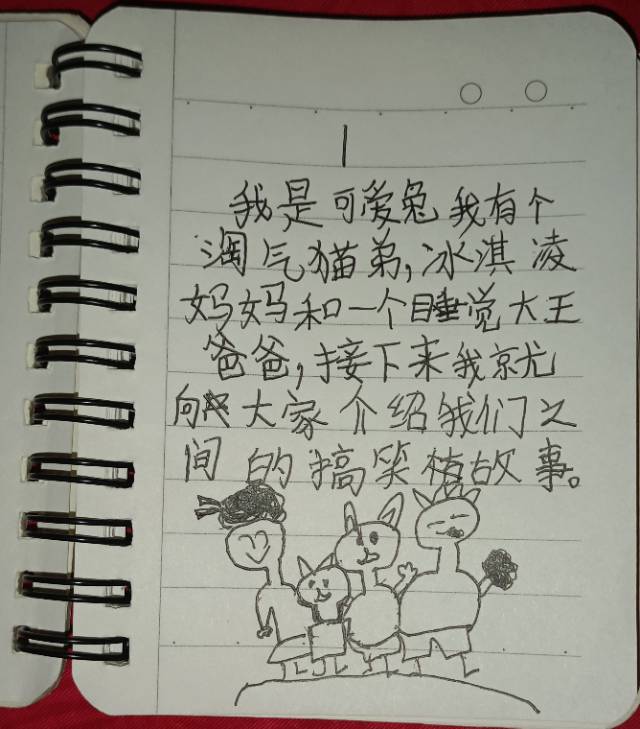 1
我是可爱兔我有个
淘气猫弟,冰淇凌
妈妈和一个睡觉大王
爸爸,接下来我就
向大家介绍我们之
间的搞笑故事。